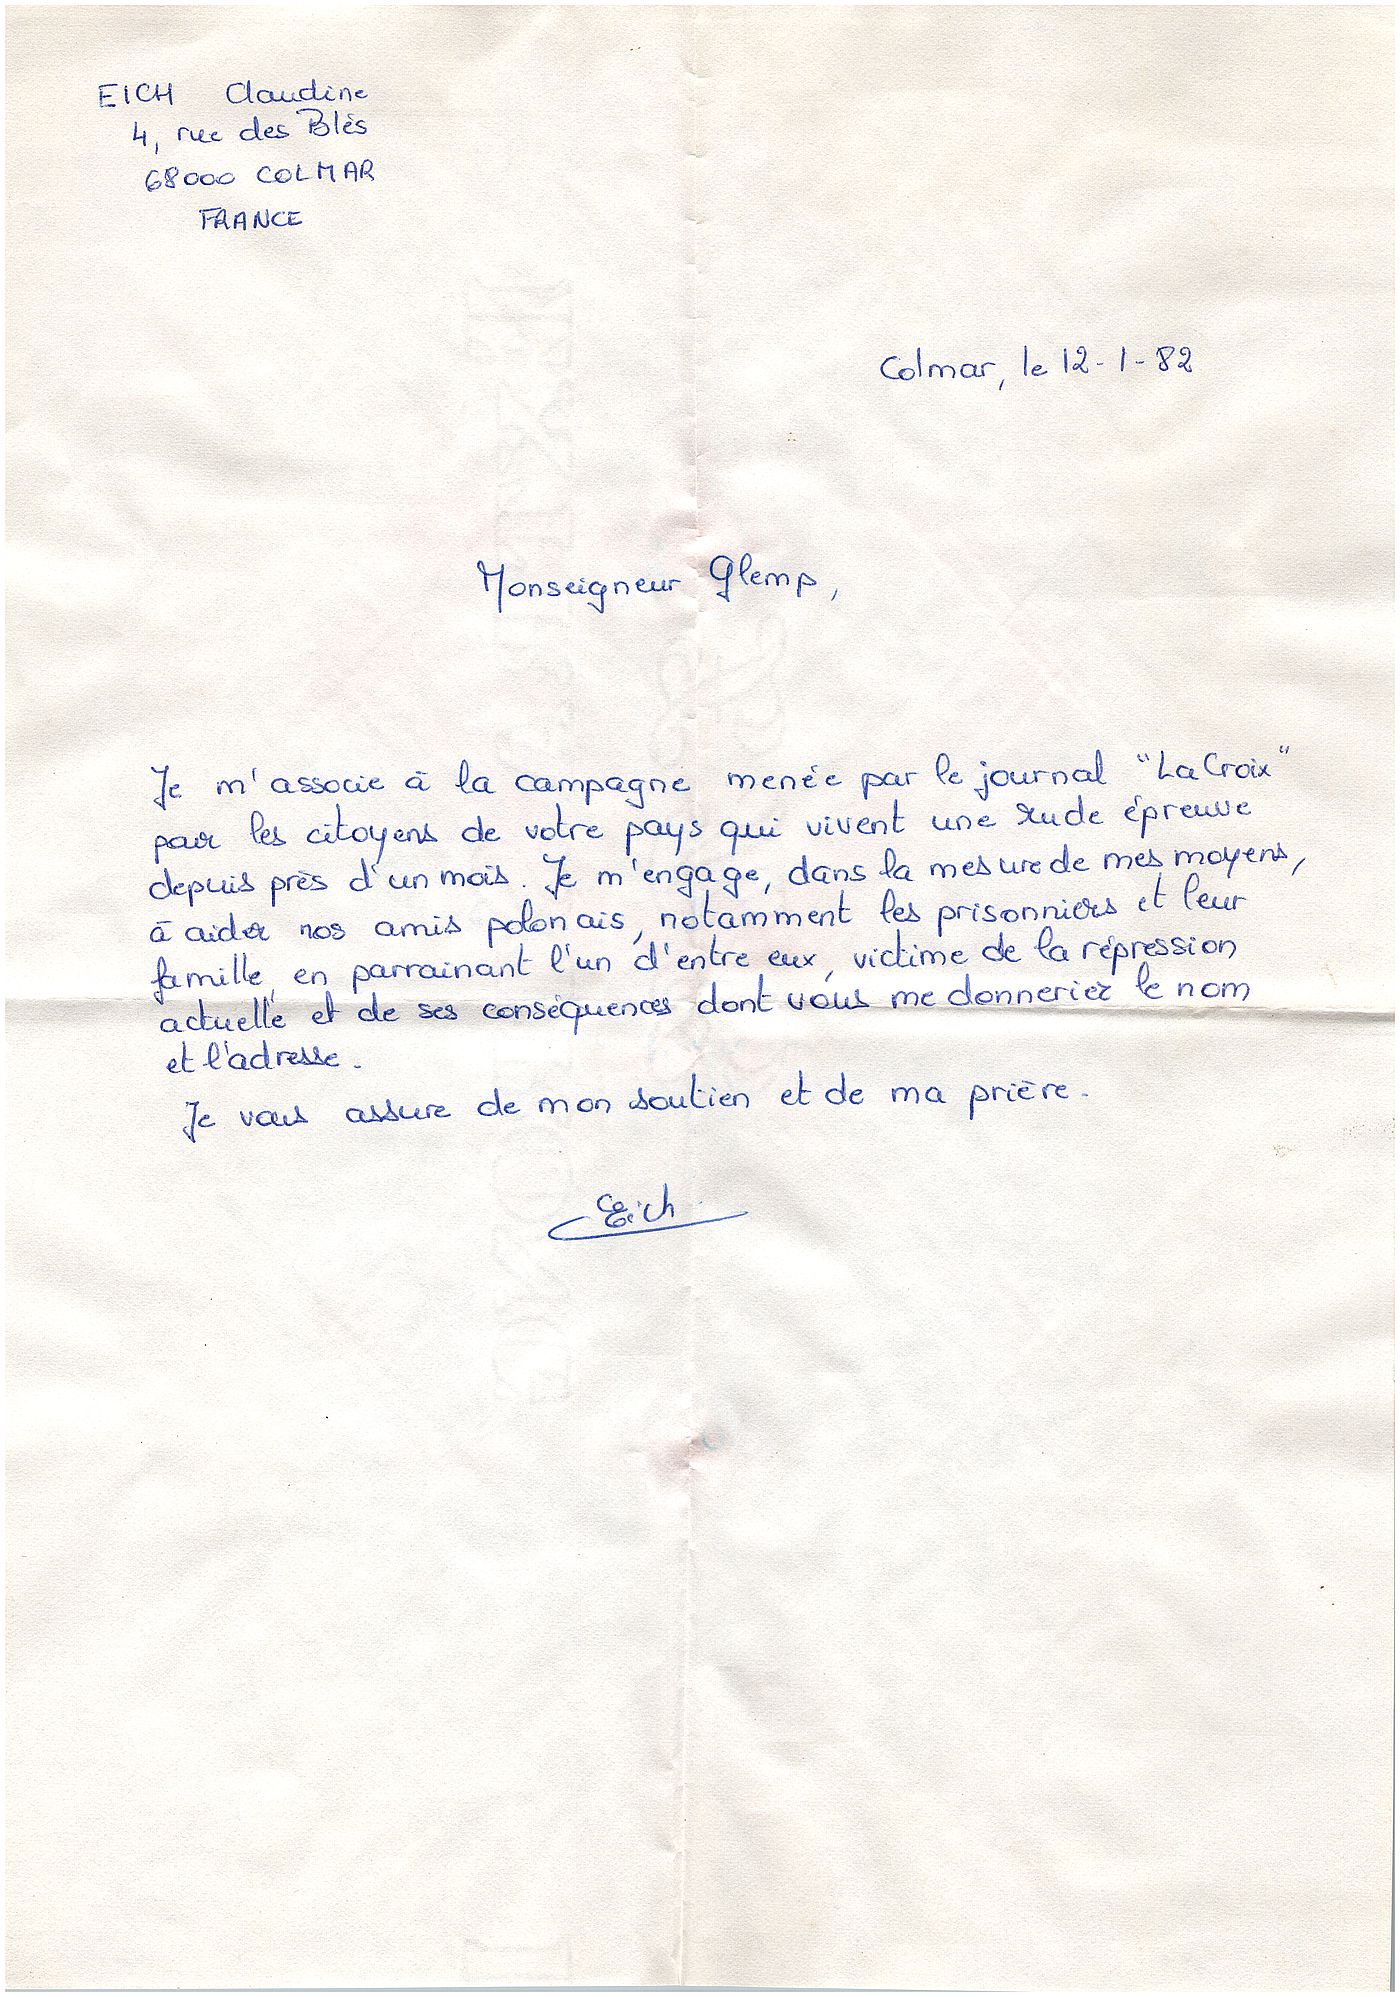 EICH Claudine
4, rue des Blés
68000 COLMAR
FRANCE
Colmar, le 12-1-82
Monseigneur Glemp,
Je m'associe à la campagne menée par le journal "La Croix"
pour les citoyens de votre pays qui vivent une rude épreuve
depuis près d'un mois. Je m'engage, dans la mesure de mes moyens,
à aider nos amis polonais, notamment les prisonniers et leur
famille, en parrainant l'un d'entre eux, victime de la répression
actuelle et de ses conséquences dont vous me donneriez le nom
et l'adresse.
Je vous assure de mon soutien et de ma prière.
Eich